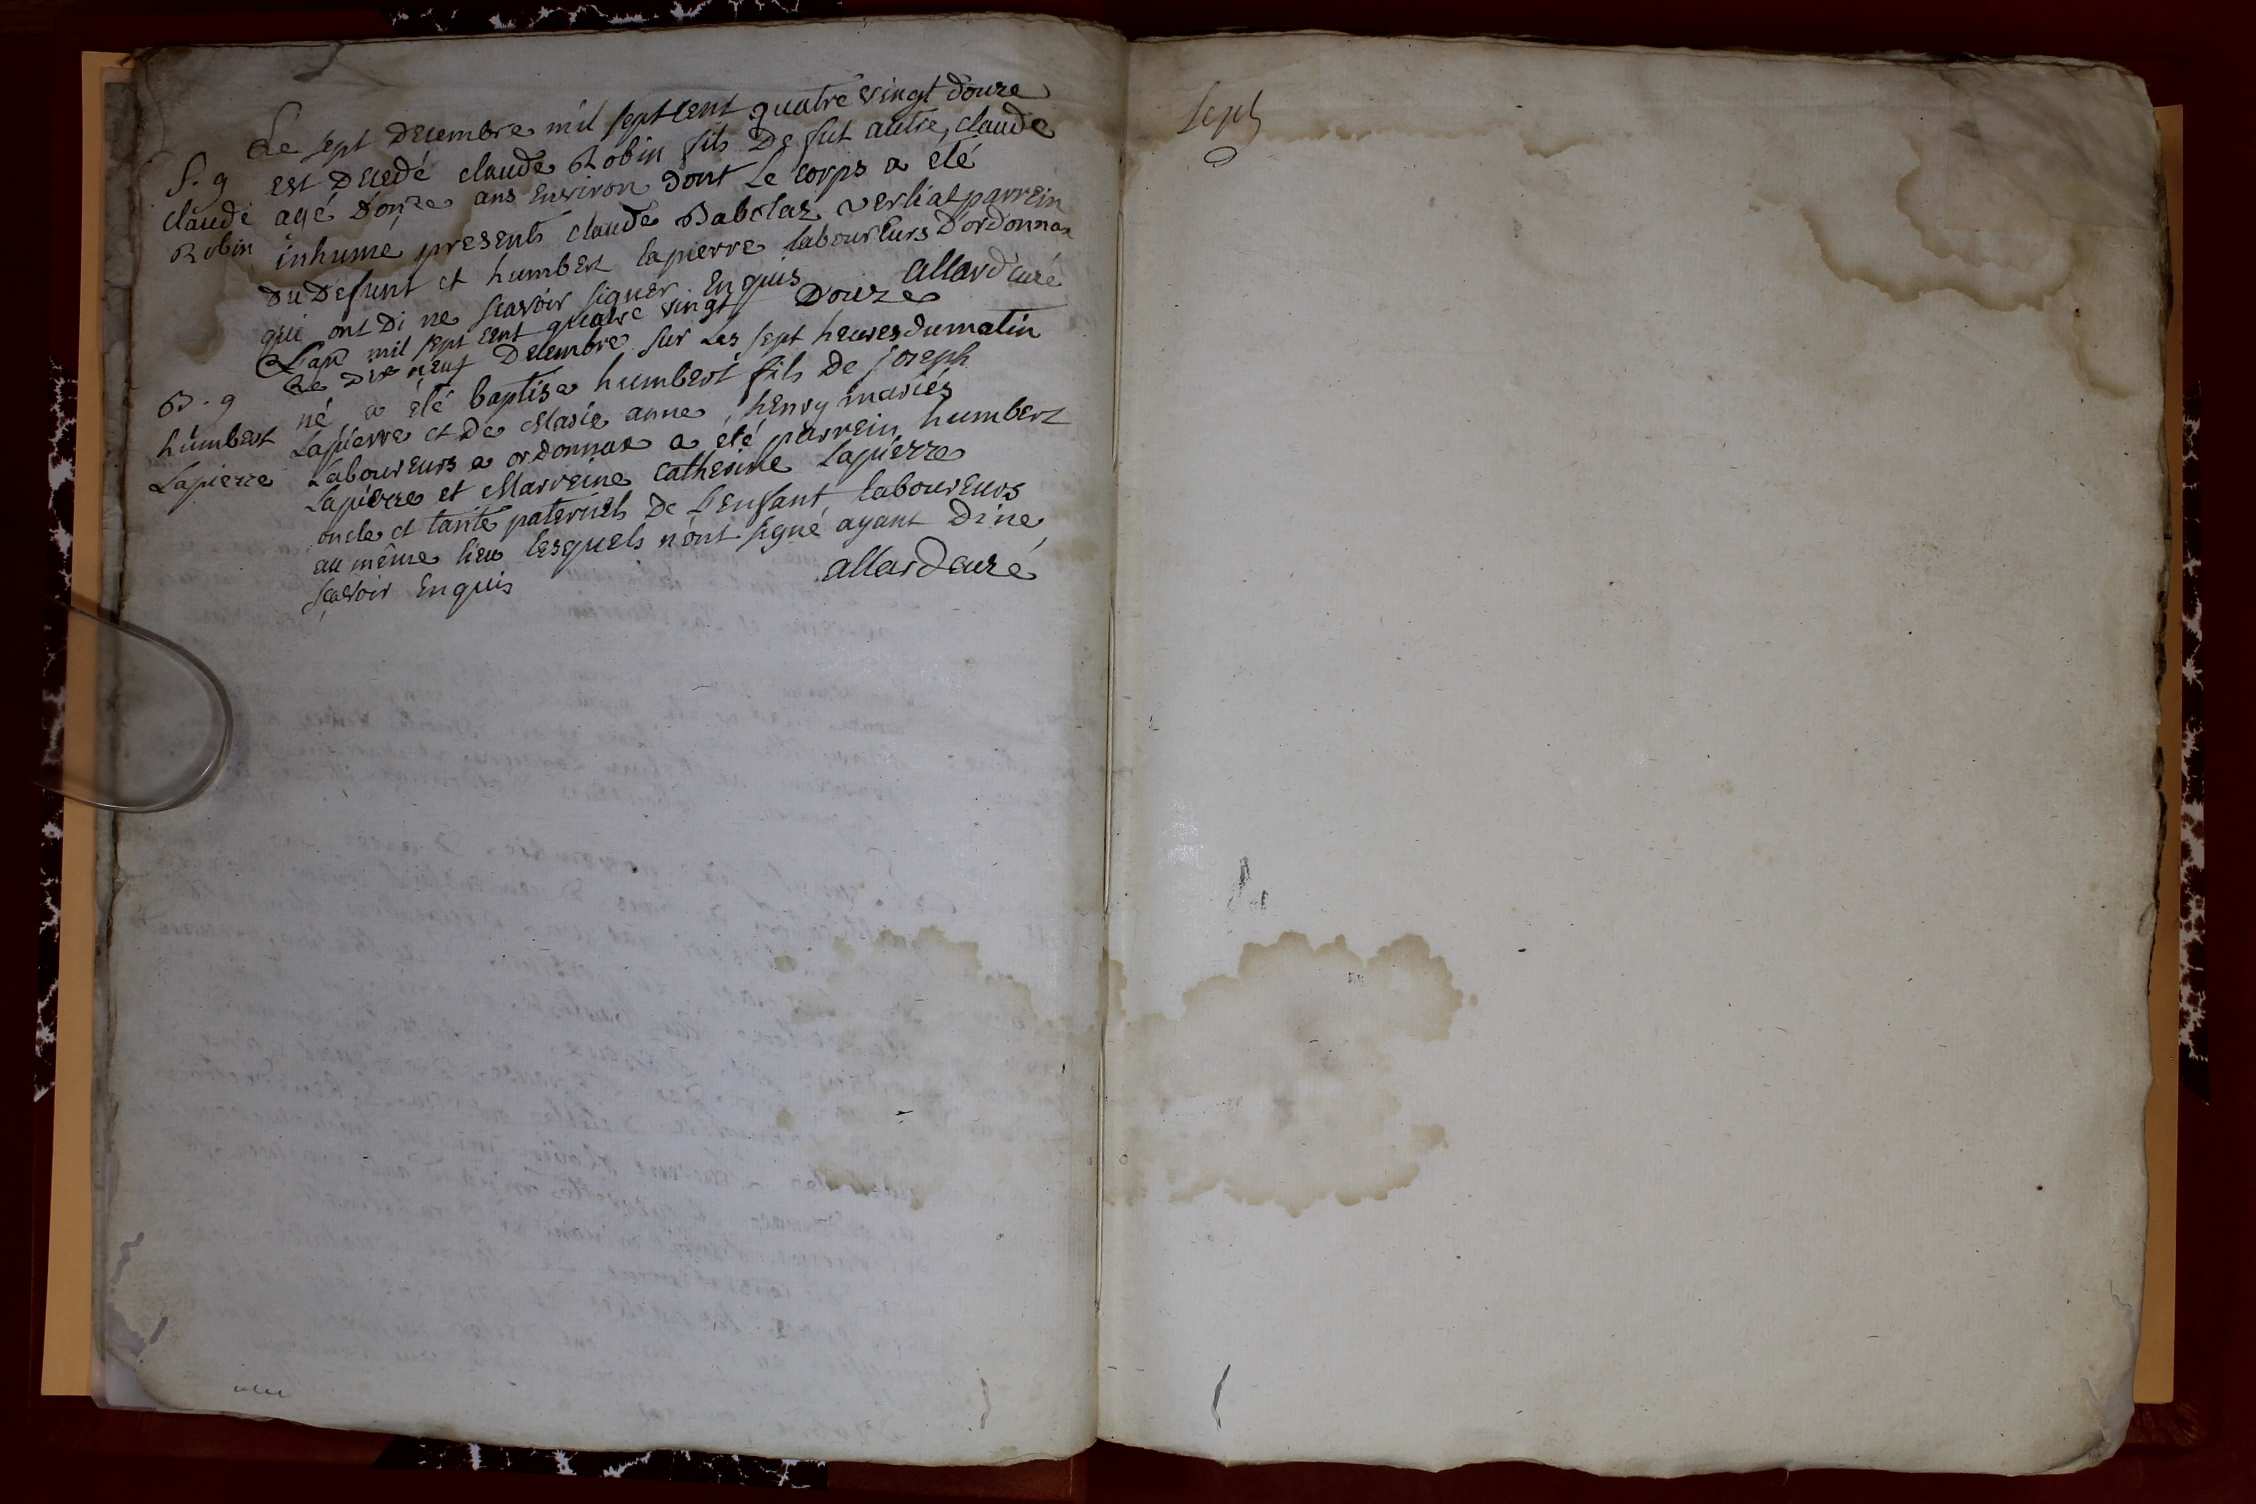 Le sept Decembre mil sept cent quatre vingt douze
S. 9 est Decedé claude Robin fils De fut autre claude
claude agé D'onze ans Environ dont Le corps a été
Robin inhume presents claude Babolaz verliat parrein
du Defunt et humbert lapierre laboureurs D'ordonnax
qui ont Di ne scavoir signer Enquis allard curé
L'an mil sept cent quatre vingt Douze
Le Dix neuf Decembre sur Les sept heures du matin
B. 9 né a été baptise humbert fils De joseph
humbert Lapierre et De Marie anne henry mariés
Lapierre Laboureurs a ordonnax a été parrein humbert
Lapierre et Marreine catherine lapierre
oncle et tante paternels De L'enfant laboureurs
au même lieu lesquels n'ont signé ayant Di ne
scavoir Enquis allard curé
sept